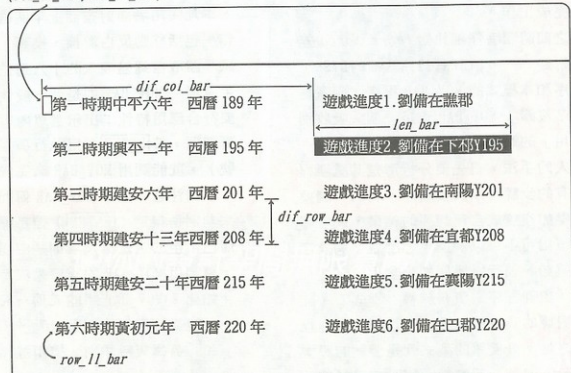 dif_col_bar
第一時期中平六年 西曆 189 年 遊戲進度1.劉備在譙郡
len_bar
第二時期興平二年 西曆 195 年 遊戲進度2.劉備在下邳Y195
第三時期建安六年 西曆 201 年 遊戲進度3.劉備在南陽Y201
dif_row_bar
第四時期建安十三年 西曆 208 年 遊戲進度4.劉備在宜都Y208
第五時期建安二十年 西曆 215 年 遊戲進度5.劉備在襄陽Y215
第六時期黃初元年 西曆 220 年 遊戲進度6.劉備在巴郡Y220
row_ll_bar